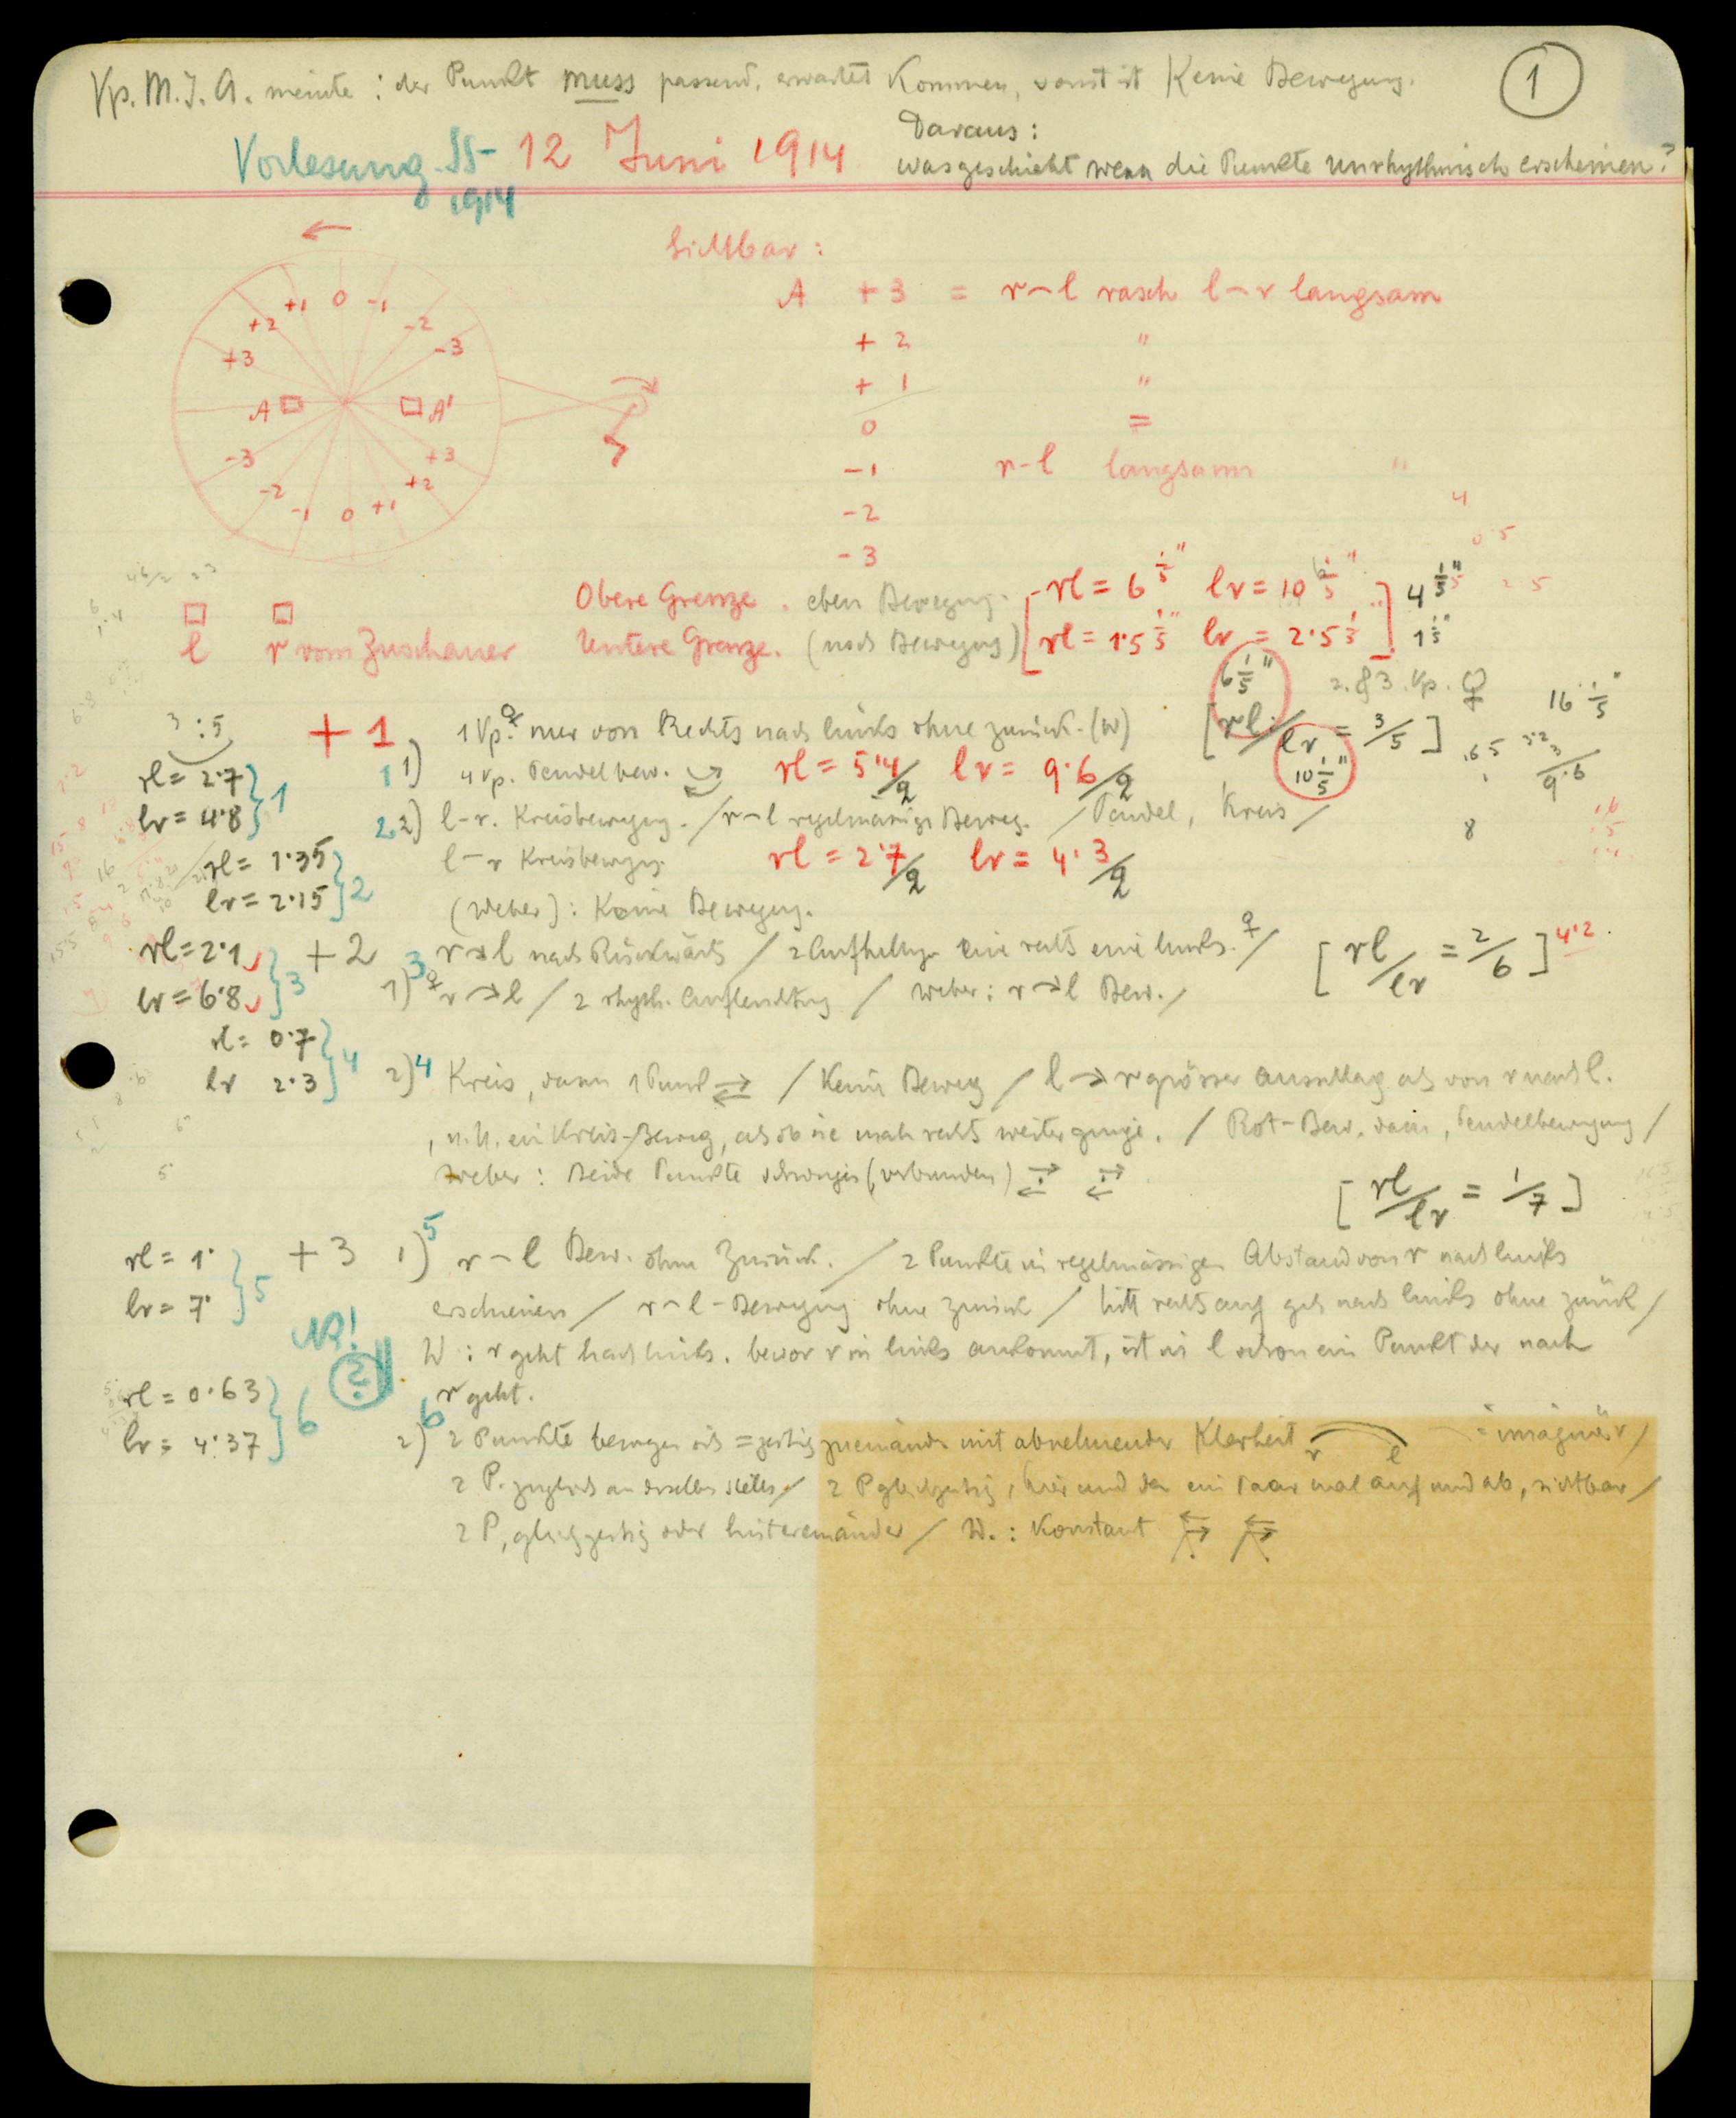 Vp. M.I.A. meinte: der Punkt muss passend, erwartet kommen, sonst ist Keine Bewegung.
1
Daraus:
was geschieht wenn die Punkte unrhythmisch erscheinen?
Vorlesung. SS- 12 Juni 1914
1914
Sichtbar:
A +3 = r-l rasch l-r langsam
+2 "
+1 "
0 =
-1 r-l langsam "
-2
-3
+3 +2 +1 0 -1 -2 -3
A A'
-3 -2 -1 0 +1 +2 +3
4
0·5
2 5
Obere Grenze. eben Bewegung. [rl = 6 1/5" lr = 10 1/5"] 4 1/5"
l r vom Zuschauer Untere Grenze. (noch Bewegung) [rl = 1·5 1/5" lr = 2·5 1/5] 1 1/5"
6 1/5" 2. & 3. Vp. ♀ 16 1/5"
3:5
+1 1 Vp. ♀ nur von Rechts nach links ohne zurück. (W) [rl/lr = 3/5]
10 1/5"
rl = 2·7
lr = 4·8 } 1
1 1) 4 Vp. Pendelbew. rl = 5·4/2 lr = 9·6/2
9·6
2 2) l-r. Kreisbewegung. / r-l regelmässige Beweg. / Pendel, Kreis /
8
rl = 1·35
lr = 2·15 } 2
l-r Kreisbewegg. rl = 2·7/2 lr = 4·3/2
(Weber): Keine Bewegung.
rl = 2·1
lr = 6·8 } 3
+2 3 r→l nach Rückwärts / 2 Aufhellgn eine rechts eine links. ♀ / [rl/lr = 2/6] 4·2
1) ♀ r→l / 2 rhyth. Aufleuchtung / Weber: r→l Bew. /
rl = 0·7
lr 2·3 } 4
2) 4 Kreis, dann 1 Punkt ⇄ / Keine Beweg / l→r grösser Ausschlag als von r nach l.
, u.U. ein Kreis-Beweg, als ob sie nach rechts weiter ginge. / Rot-Bew. dann, Pendelbewegung /
Weber: Beide Punkte schwingen (verbunden) ⇄ ⇄
[rl/lr = 1/7]
rl = 1·
lr = 7· } 5
+3 1) 5 r-l Bew. ohne Zurück. / 2 Punkte in regelmässigen Abstand von r nach links
erscheinen / r-l-Bewegung ohne zurück / tritt rechts auf geht nach links ohne zurück /
NB!
?
W: r geht nach links. bevor r in links ankommt, ist in l schon ein Punkt der nach
r geht.
rl = 0·63
lr = 4·37 } 6
2) 6 2 Punkte bewegen sich =zeitig zueinander mit abnehmender Klarheit r l = imaginär /
2 P. zugleich an derselben Stelle / 2 P gleichzeitig, hier und da ein Paar mal auf und ab, sichtbar /
2 P, gleichzeitig oder hintereinander / W.: Konstant ⇆ ⇆